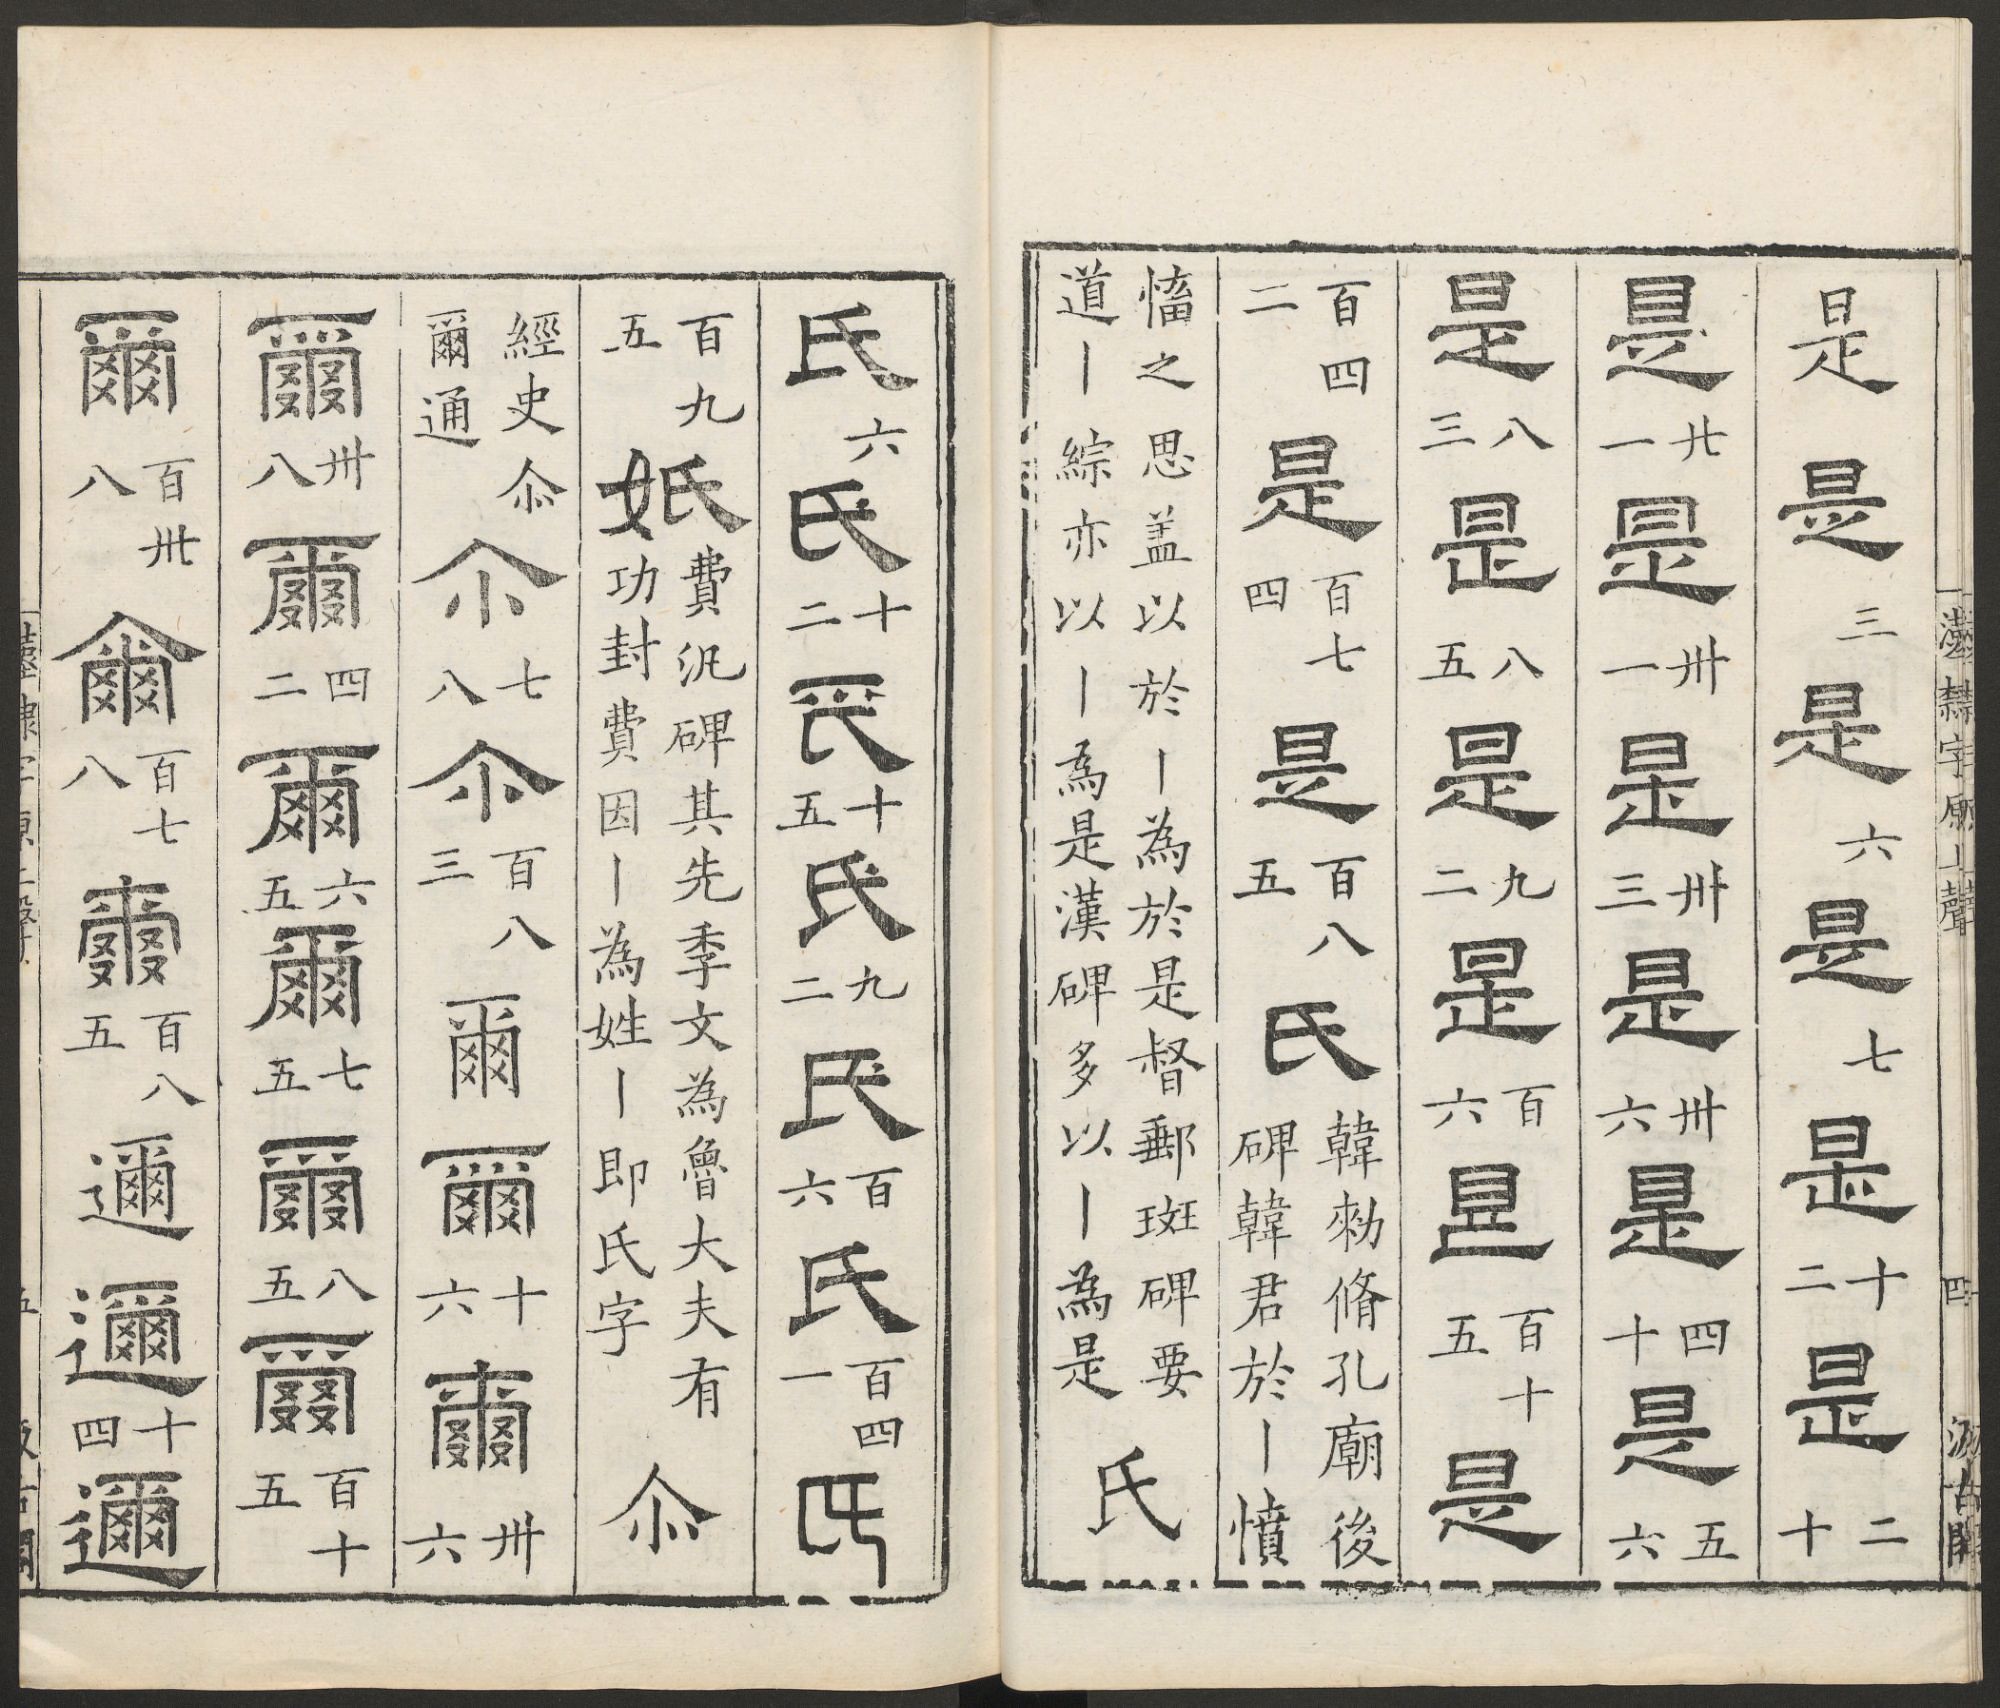 漢隸字原上聲 四 汲古閣
是 是三 是六 是七 是十二 是二十
是廿一 是卅一 是卅三 是卅六 是四十 是五六
是八三 是八五 是九二 是百六 是百十五 是
百四二 是百七四 是百八五 氏 韓勑脩孔廟後碑韓君於丨憤
愊之思盖以於丨為於是督郵斑碑要道丨綜亦以丨為是漢碑多以丨為是 氏
氏六 氏十二 氏十五 氏九二 氏百六 氏百四一 氏
百九五 費汎碑其先季文為魯大夫有功封費因丨為姓丨即氏字 尒
經史尒爾通 尒七八 尒百八三 爾 爾十六 爾卅六
爾卅八 爾四二 爾六五 爾七五 爾八五 爾百十五
爾百卅八 爾百七八 爾百八五 邇 邇十四 邇